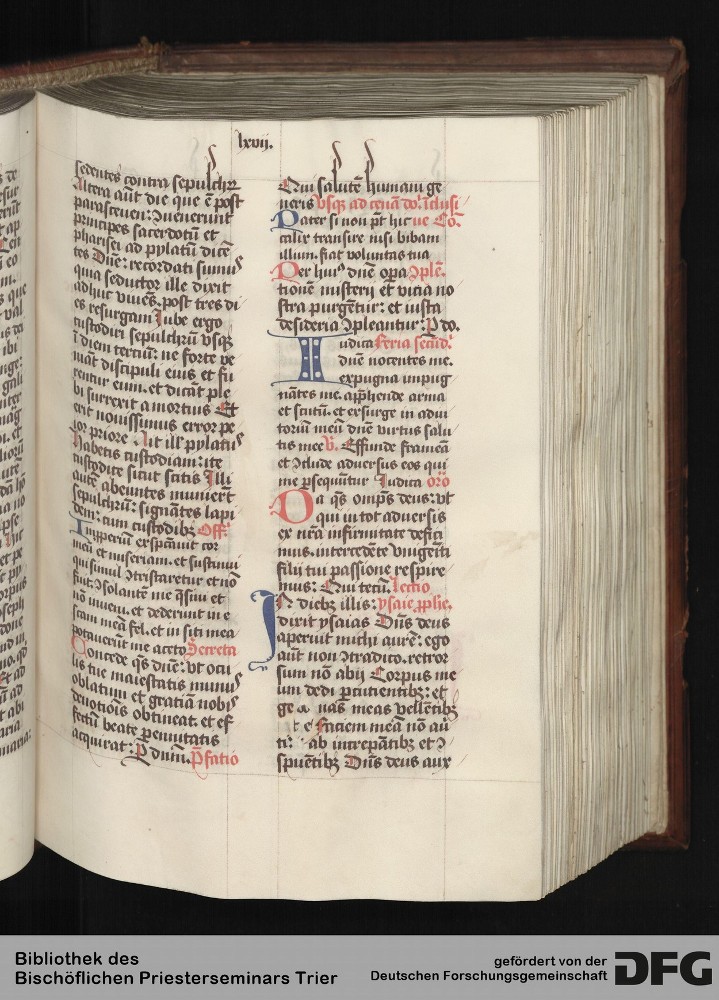 lxvij.
sedentes contra sepulchrū
Altera aūt die que ē post
parasceuen: Ↄuenerunt
principes sacerdotū et
pharisei ad pylatū dicē
tes Dn̄e: recordati sumus
quia seductor ille dixit
adhuc viuēs. post tres di
es resurgam Iube ergo
custodiri sepulchrū vsqꝫ
ī diem terciū: ne forte ve
niāt discipuli eius et fu
rentur eum. et dicāt ple
bi surrexit a mortuis Et
erit nouissimus error pe
ior priore Ait ill' pylatus
habetis custodiam: ite
custodite sicut scitis Illi
autē abeuntes munierūt
sepulchrū: signātes lapi
dem: cum custodibꝫ Off̄.
Inproperiū exspectauit cor
meū et miseriam. et sustinui
qui simul Ↄtristaretur et nō
fuit: Ↄsolantē me q̄siui et
nō inueni. et dederunt in e
scam meā fel. et in siti mea
potauerūt me aceto Secreta
Concede q̄s dn̄e: vt ocu
lis tue maiestatis munus
oblatum et gratiā nobis
deuotiōis obtineat. et ef
fectū beate perennitatis
acquirat: P dnm̄. P̄fatio
Qui salutē humani ge
neris vsqꝫ ad cenā do. īclusi
Pater si non pt̄ hic ue Cō.
calix transire nisi bibam
illum. fiat voluntas tua
Per huiꝰ dn̄e opa Ↄplē.
tionē misterij et vicia no
stra purgētur: et iusta
desideria Ↄpleantur: P do.
Iudica Feria secūd.
dn̄e nocentes me.
expugna inpug
nātes me. app̄hende arma
et scutū. et exurge in adiu
toriū meū dn̄e virtus salu
tis mee V. Effunde frameā
et Ↄclude aduersus eos qui
me ꝑsequūtur Iudica orō
Da q̄s omp̄s deus: vt
qui in tot aduersis
ex nr̄a infirmitate defici
mus. intercedēte vnigeniti
filij tui passione respire
mus: Qui tecū. lectio
In diebꝫ illis: ysaie ꝓphe.
dixit ysaias Dn̄s deus
aperuit michi aurē: ego
aūt non Ↄtradico. retror
sum nō abij Corpus me
um dedi ꝑcutientibꝫ: et
ge a nas meas vellētibꝫ
t e faciem meā nō au
ti: ab increpātibꝫ et Ↄ
spuētibꝫ Dn̄s deus aux
Bibliothek des
Bischöflichen Priesterseminars Trier
gefördert von der
Deutschen Forschungsgemeinschaft
DFG